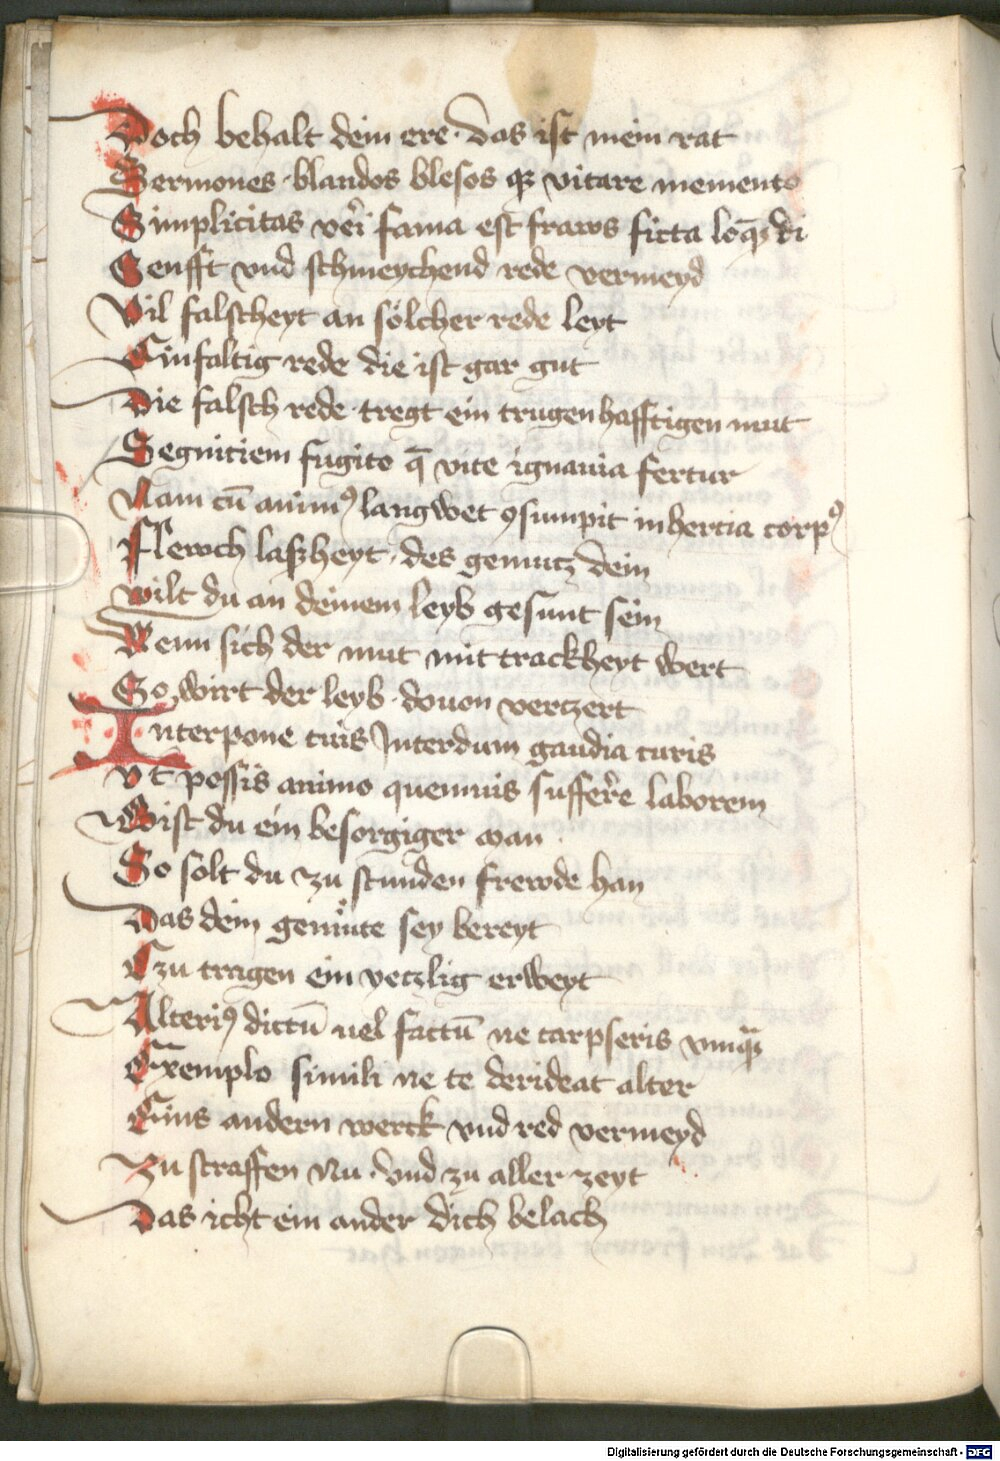 Doch behalt dein ere · das ist mein rat
Sermones · blandos blesos qꝫ vitare memento
Simplicitas veri fama est fraws ficta loqꝫdi
Senfft vnd schmeychend rede vermeyd
Vil falscheyt an sölcher rede leyt
Einfaltig rede die ist gar gut
Die falsch rede tregt ein trugenhafftigen mut
Segniciem fugito q̄ vite ignauia fertur
Nam cū animꝰ langwet ꝯsumpit inhercia corpꝰ
Flewch laßheyt · des gemutz dein
wilt du an deinem leyb gesunt sein
Wenn sich der mut mit trackheyt wert
So wirt der leyb · douon verczert
Interpone tuis Interdum gaudia curis
vt possis animo quemuis sufferre laborem
Bist du ein besorgiger man
So solt du zu stunden frewde han
Das dein gemüte sey bereyt
Czu tragen ein yeczlig erweyt
Alteriꝰ dictū uel factū ne carpseris vmqꝫ
Exemplo simili ne te derideat alter
Eins andern werck vnd red vermeyd
Zu straffen Nu · vnd zu aller zeyt
Das icht ein ander dich belach
Digitalisierung gefördert durch die Deutsche Forschungsgemeinschaft - DFG